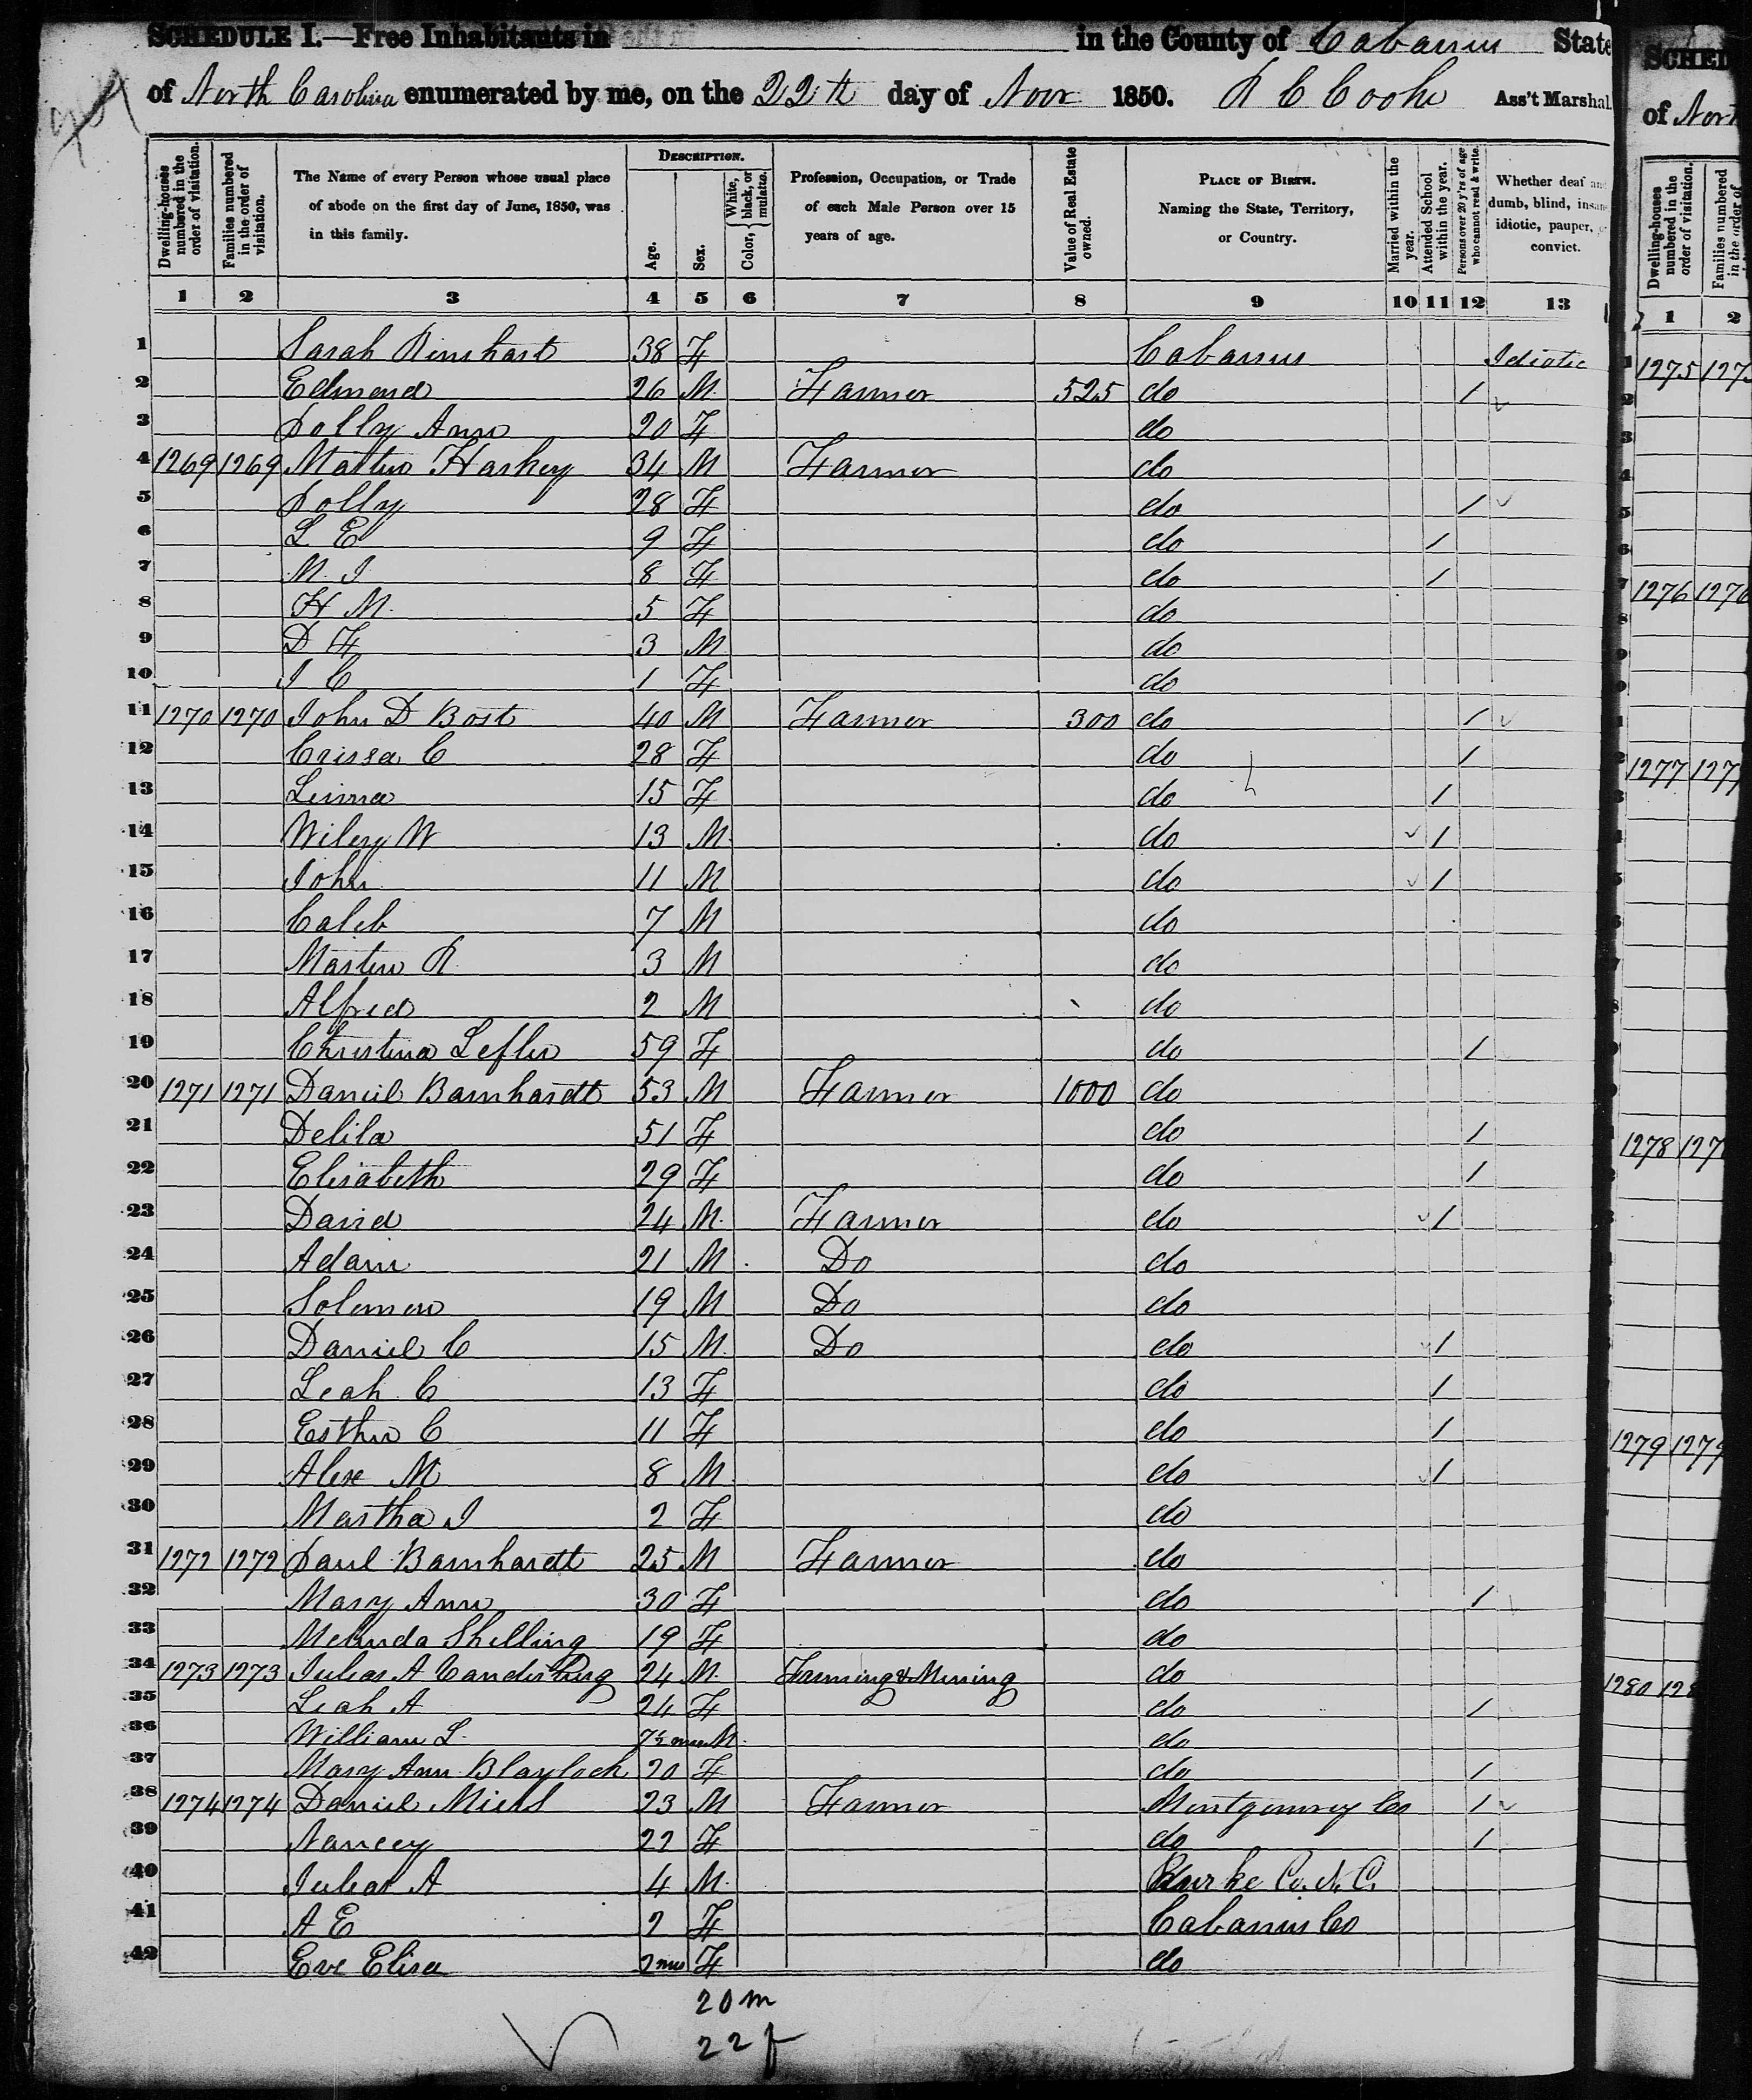 SCHEDULE I.—Free Inhabitants in in the County of Cabarrus State
of North Carolina enumerated by me, on the 22th day of Novr 1850. R C Cooke Ass't Marshal.
Dwelling-houses numbered in the order of visitation.
Families numbered in the order of visitation.
The Name of every Person whose usual place of abode on the first day of June, 1850, was in this family.
DESCRIPTION.
Age.
Sex.
Color, { White, black, or mulatto.
Profession, Occupation, or Trade of each Male Person over 15 years of age.
Value of Real Estate owned.
PLACE OF BIRTH. Naming the State, Territory, or Country.
Married within the year.
Attended School within the year.
Persons over 20 y'rs of age who cannot read & write.
Whether deaf and dumb, blind, insane, idiotic, pauper, or convict.
1 2 3 4 5 6 7 8 9 10 11 12 13
1 Sarah Rinehart 38 F Cabarrus Idiotic
2 Edmond 26 M Farmer 525 do /
3 Polly Ann 20 F do
4 1269 1269 Martin Harkey 34 M Farmer do
5 Polly 28 F do /
6 L E 9 F do /
7 M. I 8 F do /
8 H M. 5 F do
9 D F 3 M do
10 I C 1 F do
11 1270 1270 John D Bost 40 M Farmer 300 do /
12 Crissa C 28 F do /
13 Linna 15 F do /
14 Wiley W 13 M do /
15 John 11 M do /
16 Caleb 7 M do
17 Martin R 3 M do
18 Alfred 2 M do
19 Christina Lefler 59 F do /
20 1271 1271 Daniel Barnhardt 53 M Farmer 1000 do
21 Delila 51 F do /
22 Elisabeth 29 F do /
23 David 24 M. Farmer do /
24 Adam 21 M Do do
25 Solomon 19 M Do do
26 Daniel C 15 M. Do do /
27 Leah C 13 F do /
28 Esther C 11 F do /
29 Alex M 8 M do /
30 Martha I 2 F do
31 1272 1272 Paul Barnhardt 25 M Farmer do
32 Mary Ann 30 F do /
33 Melinda Shelling 19 F do
34 1273 1273 Julias A Vanderburg 24 M. Farming & Mining do
35 Leah A 24 F do /
36 William L. M. do
37 Mary Ann Blaylock 20 F do /
38 1274 1274 Daniel 23 M Farmer Montgomery Co /
39 Nancey 22 F do /
40 Julias A 4 M. Burke Co. N. C.
41 A E 2 F Cabarrus Co
42 Eve Elisa 2 mos F do
20 m
22 f
SCHED
of Nort
Dwelling-houses numbered in the order of visitation.
Families numbered in the order of
1 2
1275 127
1276 1276
1277 127
1278 127
1279 1279
1280 128